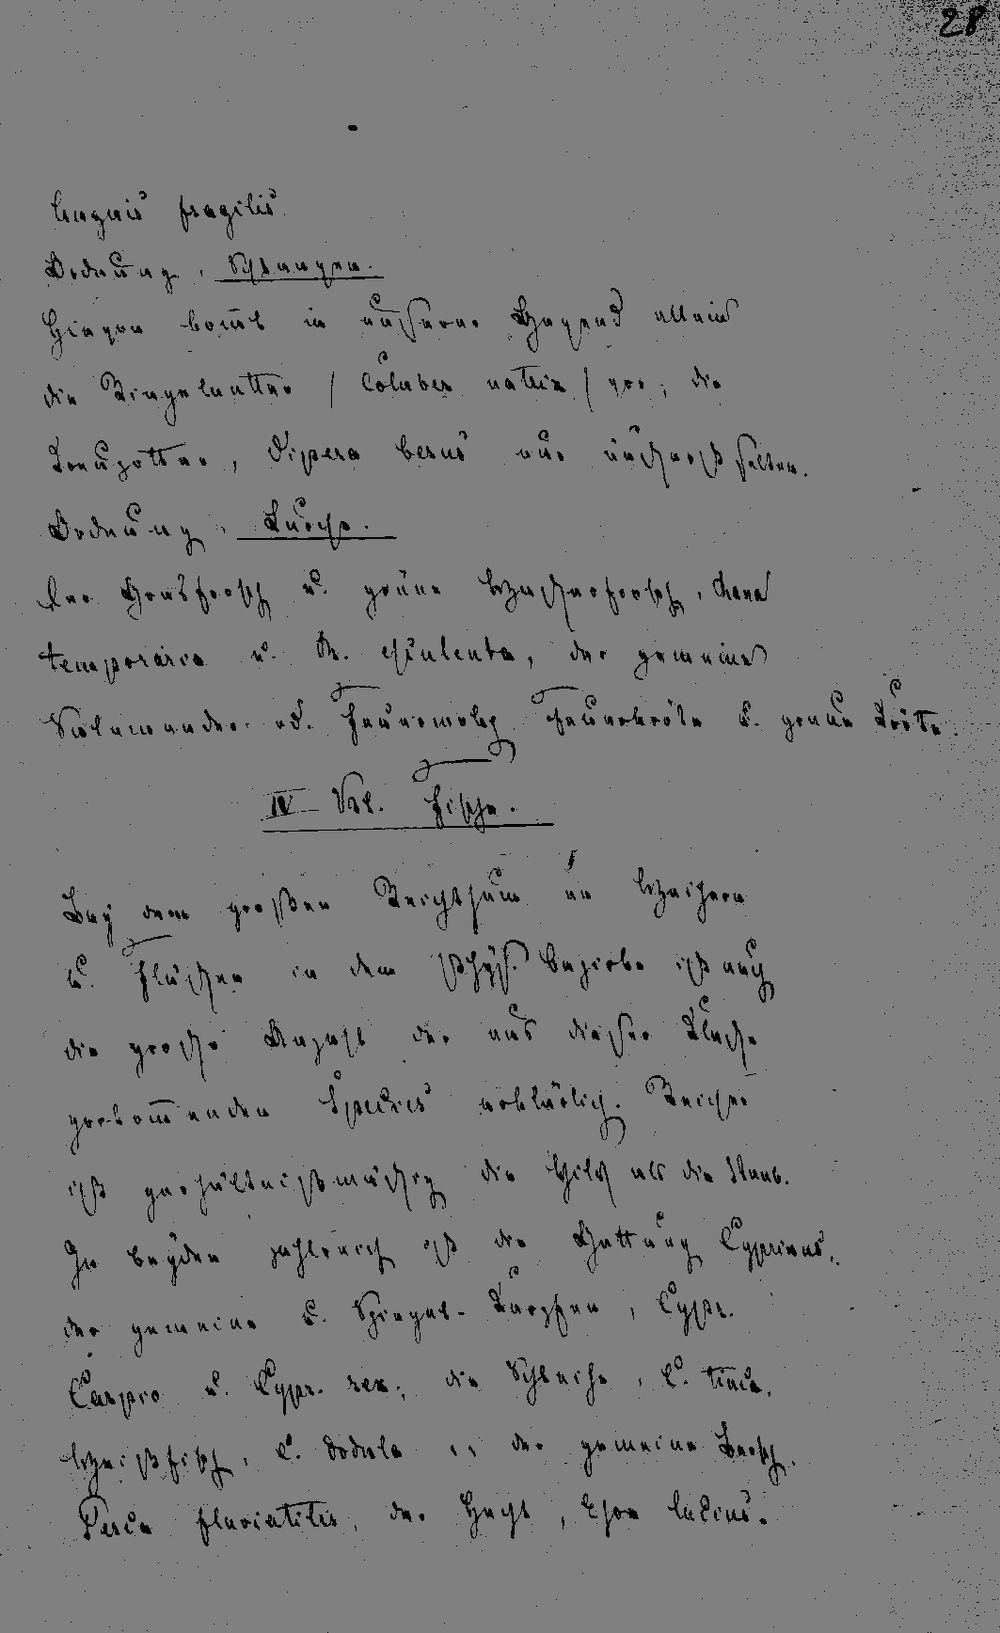 28
Anguis fragilis
Ordnung, Schlangen.
Hievon kom̄t in unserer Gegend allein
die Ringelnatter / Coluber natrix / vor, die
Kreuzotter, Vipera berus nur äußerst selten.
Ordnung, Lurche.
Der Grasfrosch u. grüne Wasserfrosch, Rana
temporaria u. R. esculenta, der gemeine
Salamander od. Feuermolch, Feuerkröte u. graue Kröte.
IV Kl. Fische.
Bey dem großen Reichthum an Weihern
u. Flüssen in dem Bezirke ist auch
die große Anzahl der aus dieser Klasse
vorkom̄enden Species erklärlich. Reicher
ist verhältnißmäßig die Vils als die Naab.
In beyden zahlreich ist die Gattung Cyprinus,
der gemeine u. Spiegel-Karpfen, Cypr.
Carpio u. Cypr. rex, die Schleihe, C. tinca,
Weißfisch, C. dobula, der gemeine Barsch,
Perca fluviatilis, der Hecht, Esox lucius.